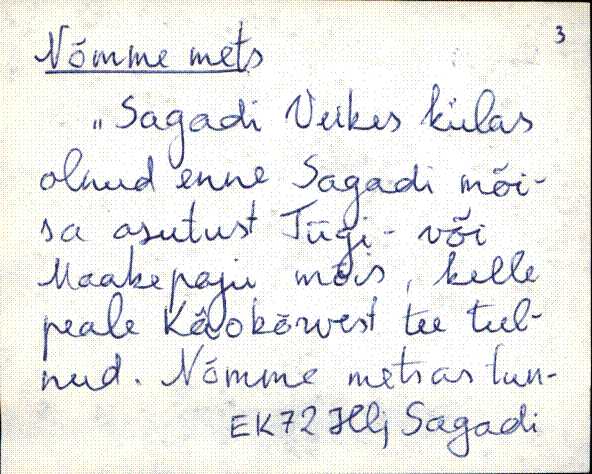 3
Nõmme mets
"Sagadi Veikes külas
olnud enne Sagadi mõi-
sa asutust Tügi- või
Maakepaju mõis, kelle
peale Käokõrvest tee tul-
nud. Nõmme metsas tun-
EK72 Hlj Sagadi